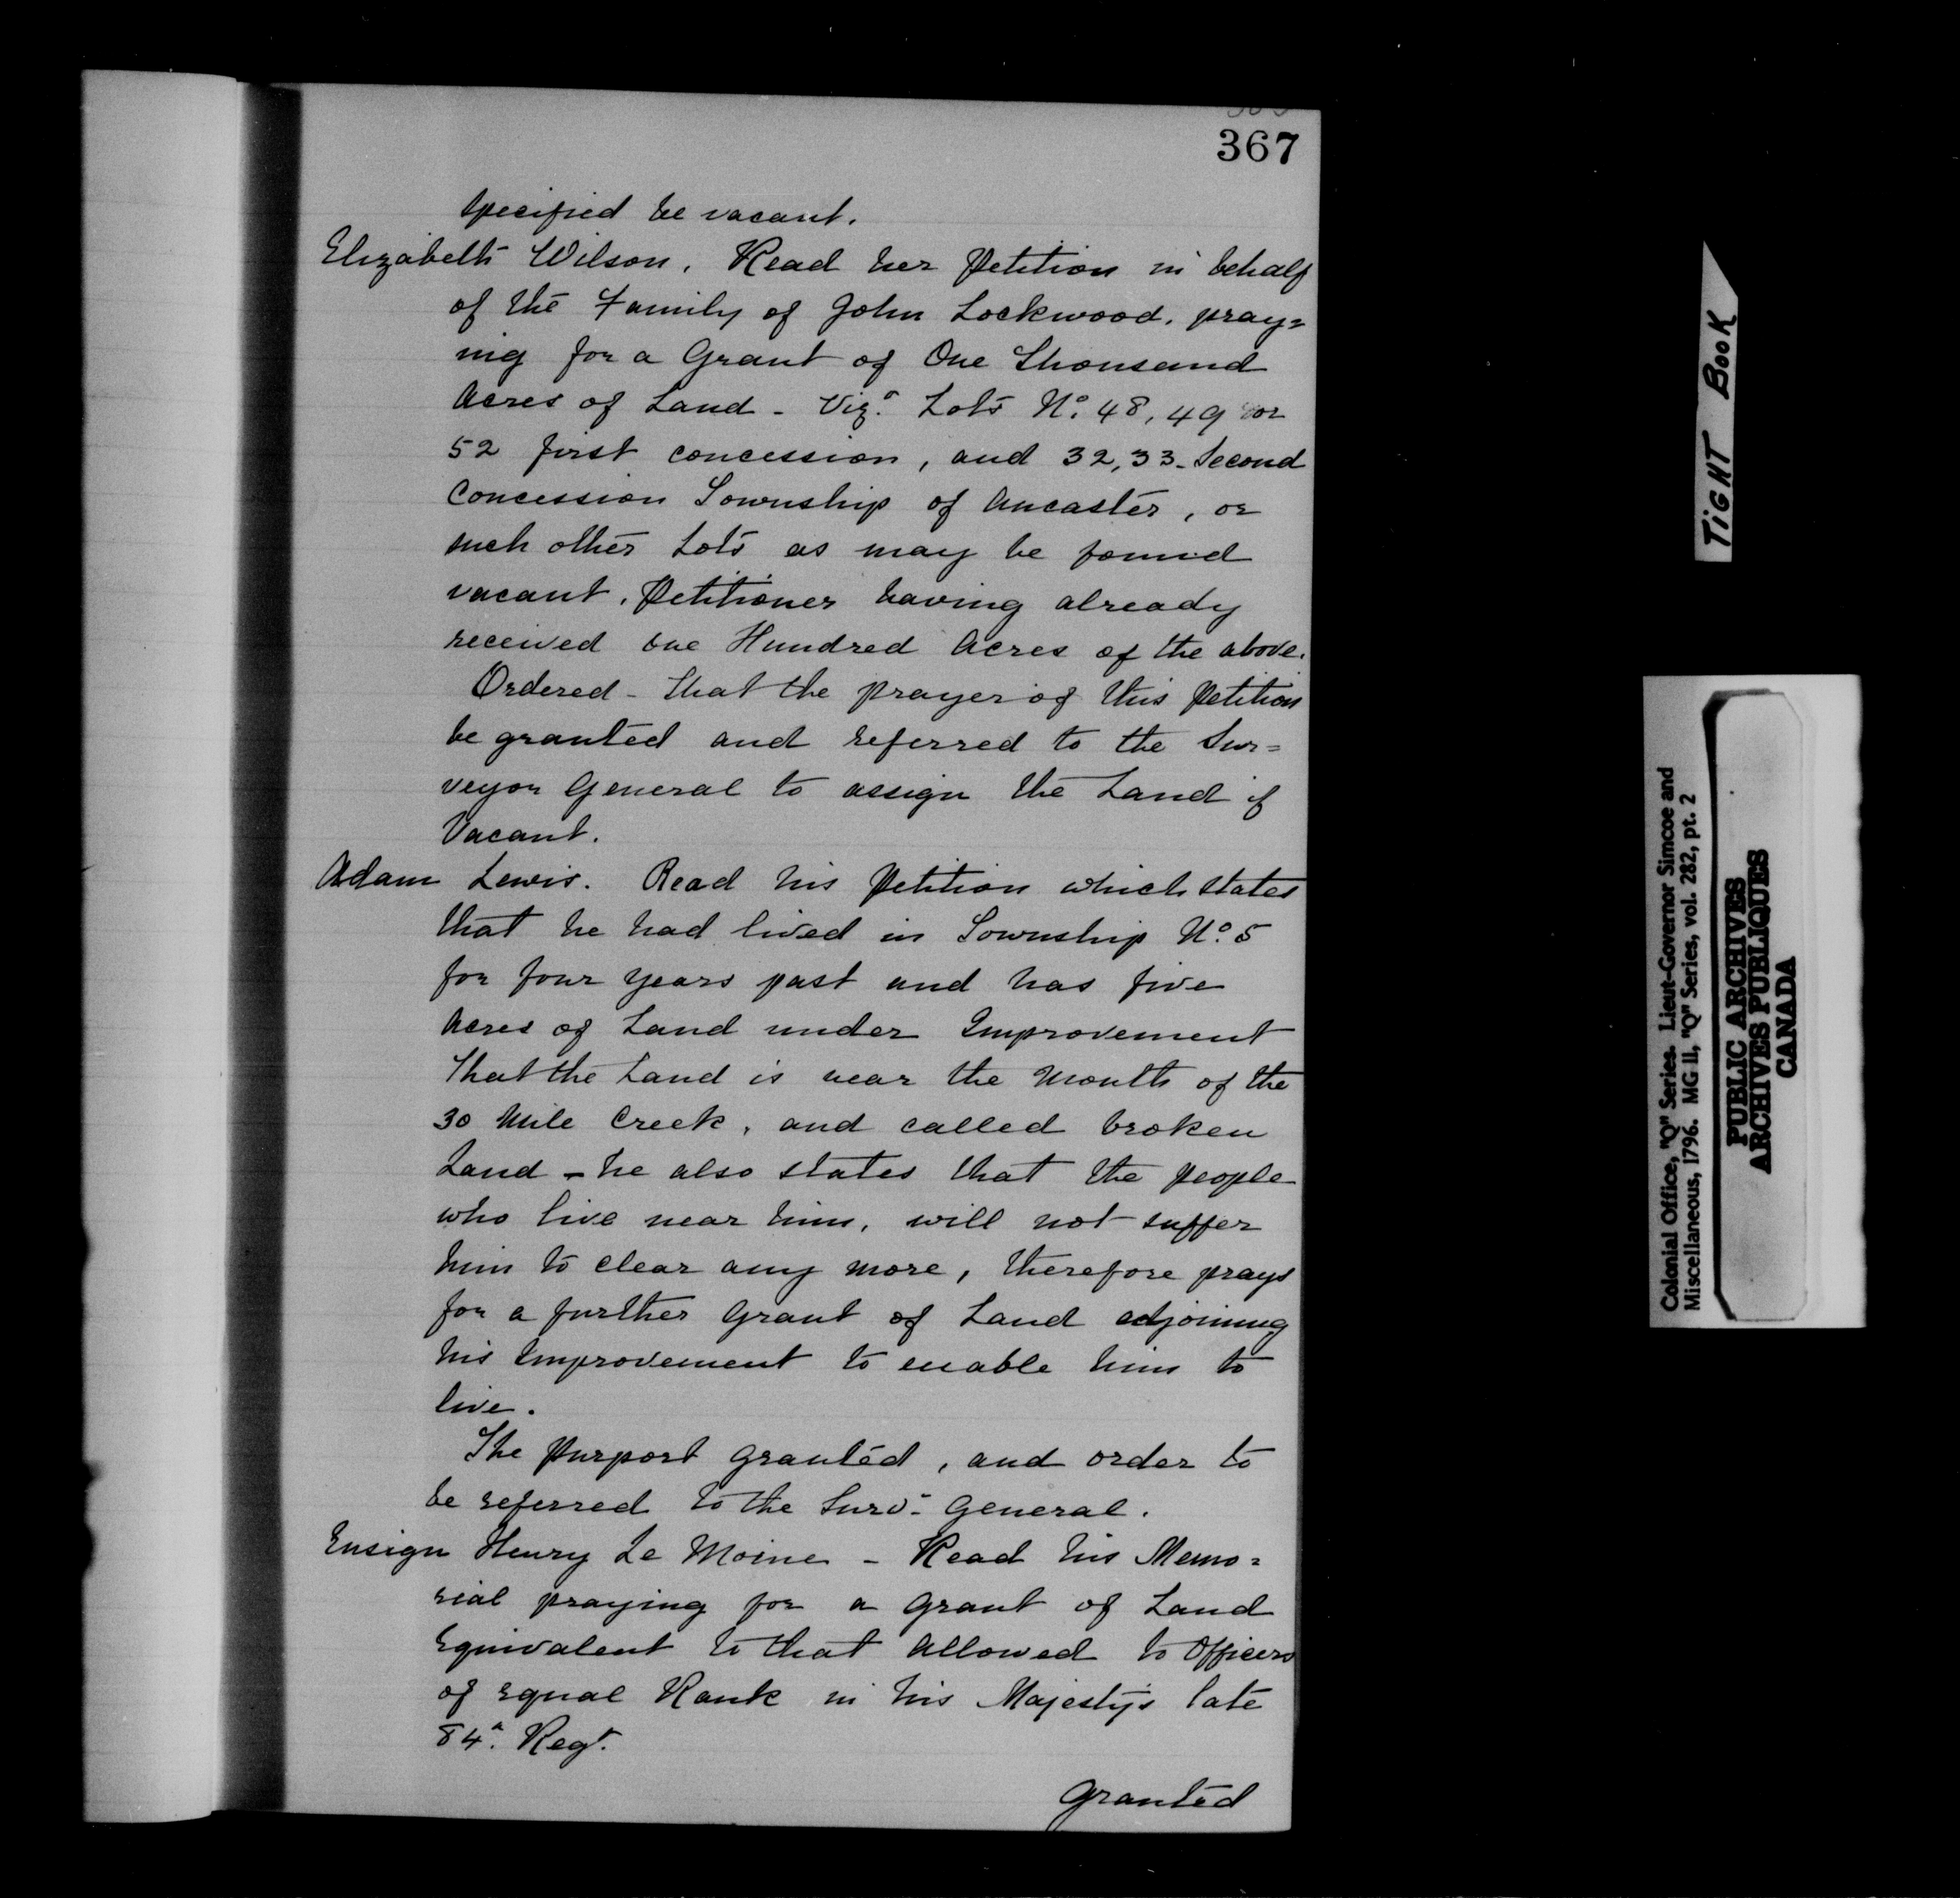 367
specified be vacant.
Elizabeth Wilson. Read her Petition in behalf
of the Family of John Lockwood. pray=
ing for a Grant of One Thousand
Acres of Land - Vizt. Lots No. 48, 49 or
52 first concession, and 32, 33 - Second
Concession Township of Ancaster, or
such other Lots as may be found
vacant. Petitioner having already
received one Hundred Acres of the above.
Ordered - that the prayer of this Petition
be granted and referred to the Sur=
veyor General to assign the Land if
Vacant.
Adam Lewis. Read his Petition which states
that he had lived in Township No. 5
for four years past and has five
Acres of Land under Improvement
That the Land is near the Mouth of the
30 Mile Creek, and called broken
Land - he also states that the people
who live near him, will not suffer
him to clear any more, therefore prays
for a further Grant of Land adjoining
his Improvement to enable him to
live.
The Purport granted, and order to
be referred to the Survr. General.
Ensign Henry Le Moine - Read his Memo=
rial praying for a Grant of Land
Equivalent to that Allowed to Officers
of Equal Rank in his Majesty's late
84th. Regt.
Granted
TIGHT BOOK
Colonial Office, "Q" Series. Lieut-Governor Simcoe and
Miscellaneous, 1796. MG 11, "Q" Series, vol. 282, pt. 2
PUBLIC ARCHIVES
ARCHIVES PUBLIQUES
CANADA